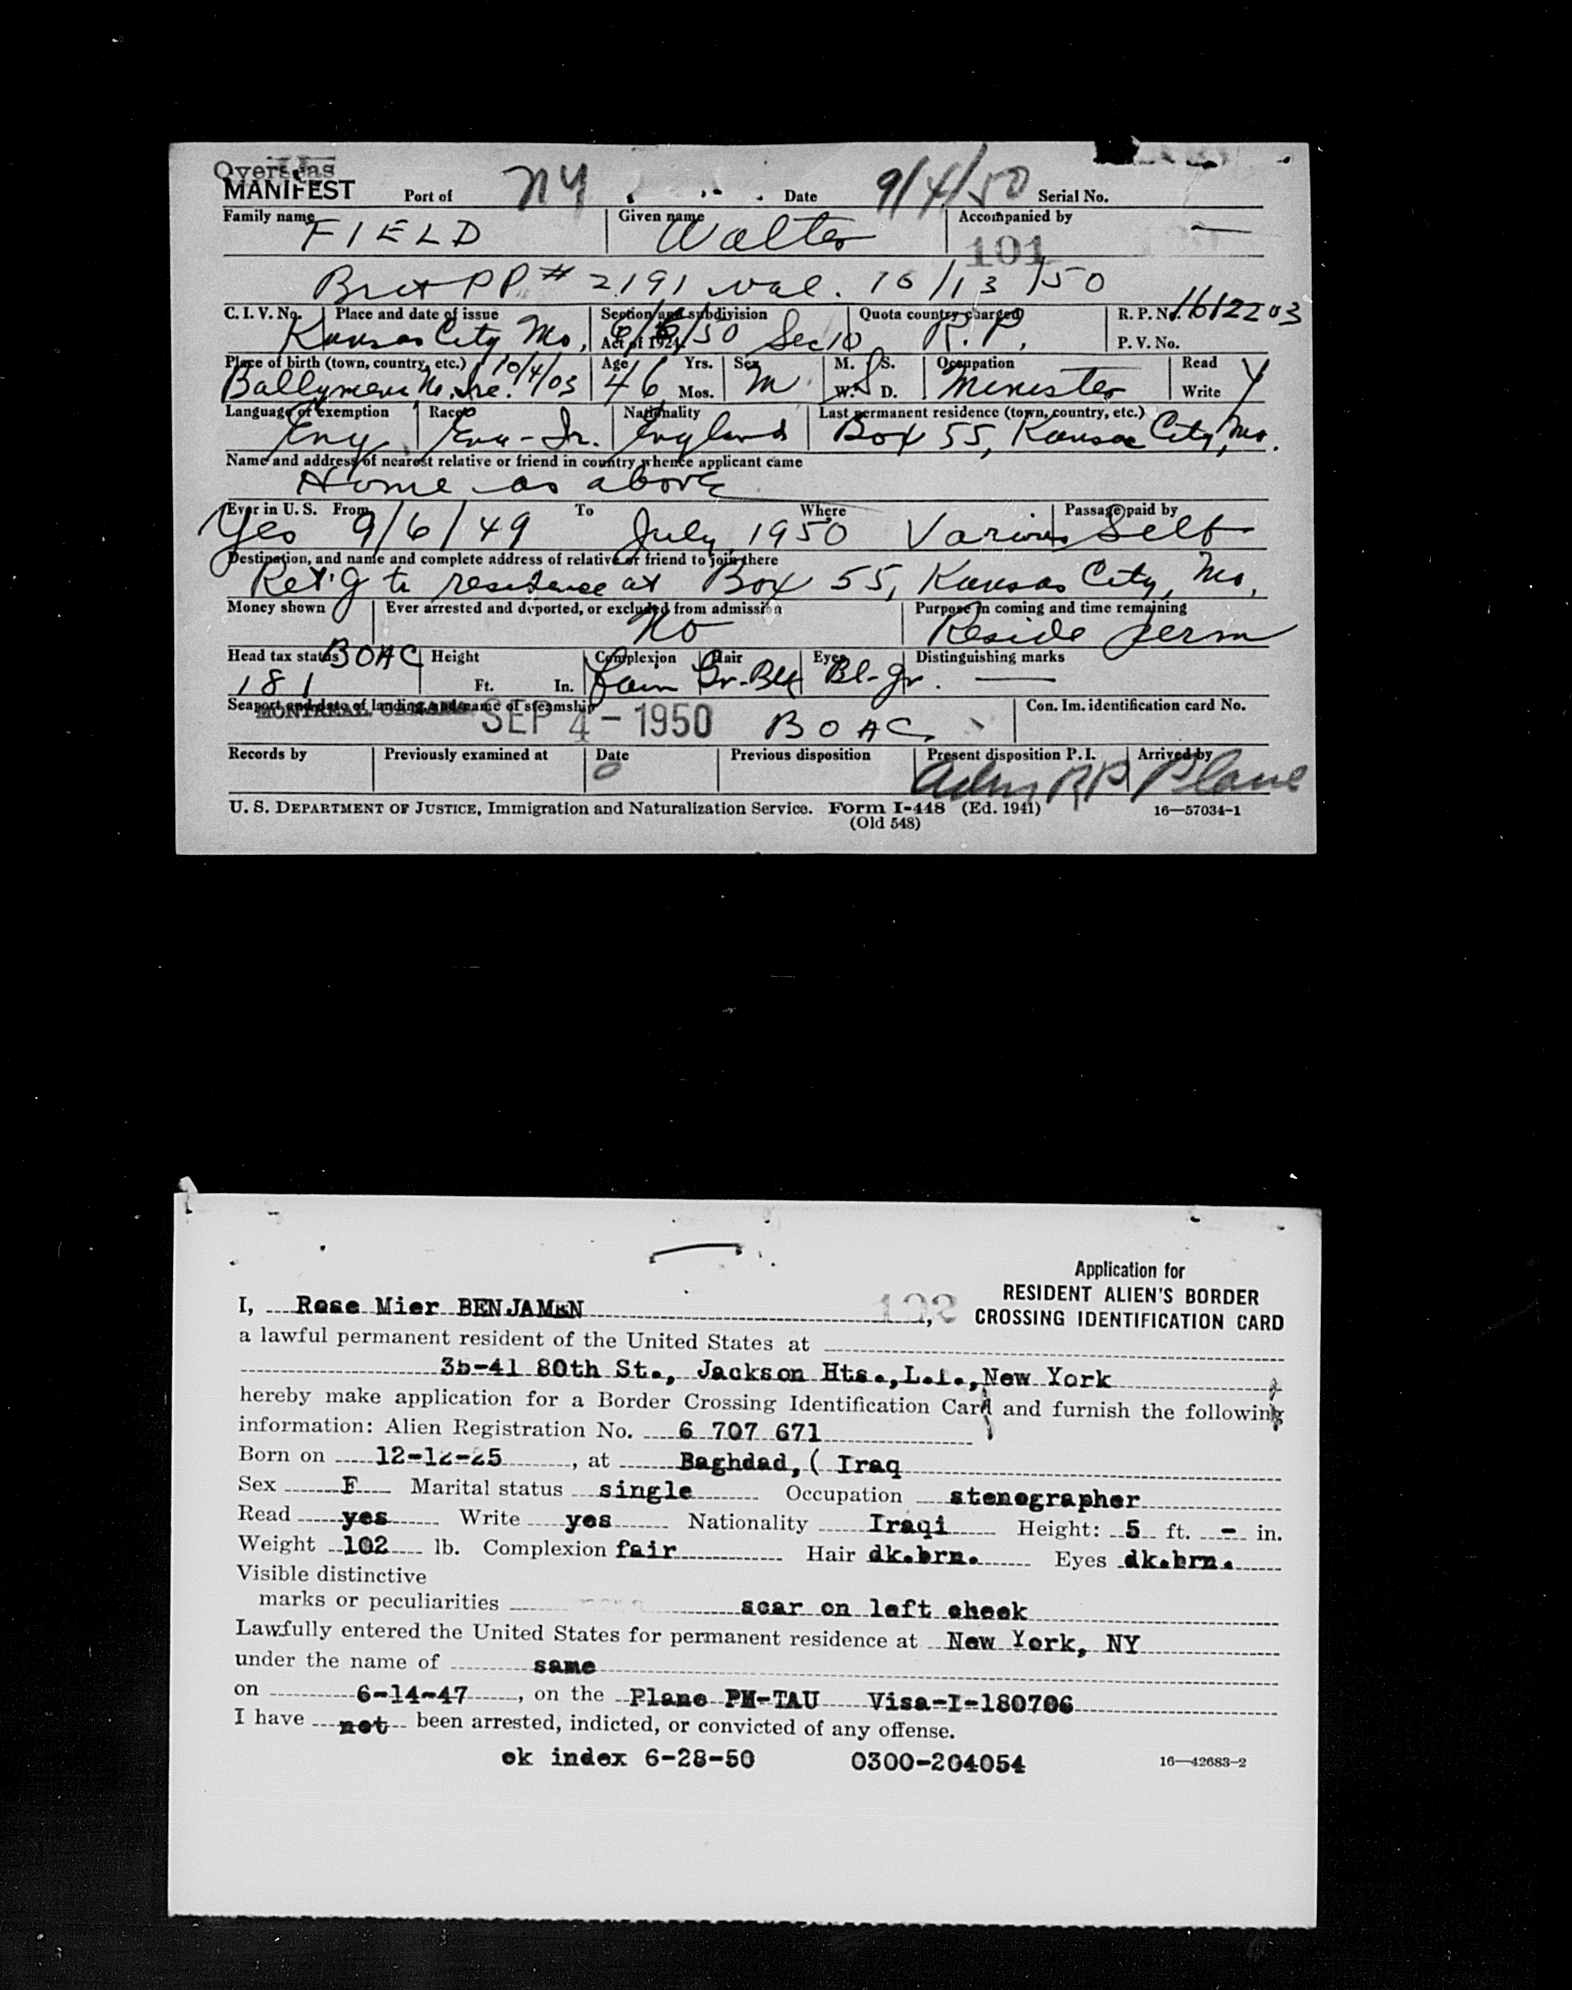 Overseas
MANIFEST Port of NY Date 9/4/50 Serial No.
Family name FIELD Given name Walter Accompanied by —
101
Brit PP # 2191 val. 10/13/50
C. I. V. No. Place and date of issue Section and subdivision Quota country charged R. P. No. 1612203
Kansas City Mo, Act of 1924 6/6/50 Sec 10 R. P. P. V. No.
Place of birth (town, country, etc.) 10/4/03 Age Yrs. Sex M. S. Occupation Read
Ballymena No. Ire. 46 Mos. M W. D. S Minister Write Y
Language or exemption Race Nationality Last permanent residence (town, country, etc.)
Eng Eng-Ir. England Box 55, Kansas City, Mo.
Name and address of nearest relative or friend in country whence applicant came
Home as above
Ever in U. S. From To Where Passage paid by
Yes 9/6/49 July 1950 Various Self
Destination, and name and complete address of relative or friend to join there
Ret'g to residence at Box 55, Kansas City, Mo,
Money shown Ever arrested and deported, or excluded from admission Purpose in coming and time remaining
No Reside perm
Head tax status BOAC Height Complexion Hair Eyes Distinguishing marks
181 Ft. In. Gr-Blk Bl-Gr. —
Seaport and date of landing, and name of steamship Con. Im. identification card No.
MONTREAL CANADA SEP 4 - 1950 BOAC
Records by Previously examined at Date Previous disposition Present disposition P. I. Arrived by
Adm RP Plane
U. S. DEPARTMENT OF JUSTICE, Immigration and Naturalization Service. Form I-448 (Ed. 1941) 16—57034-1
(Old 548)
Application for
RESIDENT ALIEN'S BORDER
CROSSING IDENTIFICATION CARD
I, Rose Mier BENJAMEN 102,
a lawful permanent resident of the United States at
35-41 80th St., Jackson Hts.,L.I.,New York
hereby make application for a Border Crossing Identification Card and furnish the following
information: Alien Registration No. 6 707 671
Born on 12-12-25, at Baghdad,( Iraq
Sex F Marital status single Occupation stenographer
Read yes Write yes Nationality Iraqi Height: 5 ft. - in.
Weight 102 lb. Complexion fair Hair dk.brn. Eyes dk.brn.
Visible distinctive
marks or peculiarities scar on left cheek
Lawfully entered the United States for permanent residence at New York, NY
under the name of same
on 6-14-47, on the Plane PH-TAU Visa-I-180706
I have not been arrested, indicted, or convicted of any offense.
ok index 6-28-50 0300-204054 16—42683-2